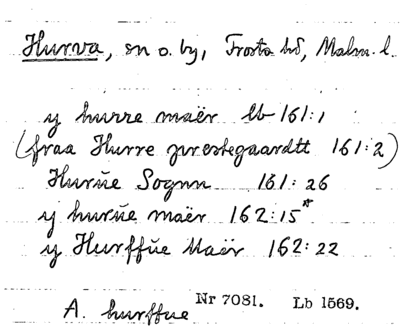 Hurva, sn o. by, Frosta hd, Malm. l.
y hurre maër lb 161:1
(fraa Hurre prestegaardtt 161:2)
Hurŭe Sognn 161:26
y hurŭe maër 162:15*
y Hurffŭe Maër 162:22
A. hurffue Nr 7081. Lb 1569.